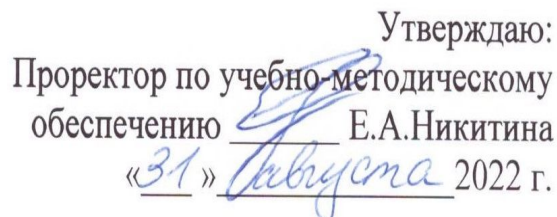 Утверждаю:
Проректор по учебно-методическому
обеспечению ________ Е.А.Никитина
«31 » августа 2022 г.